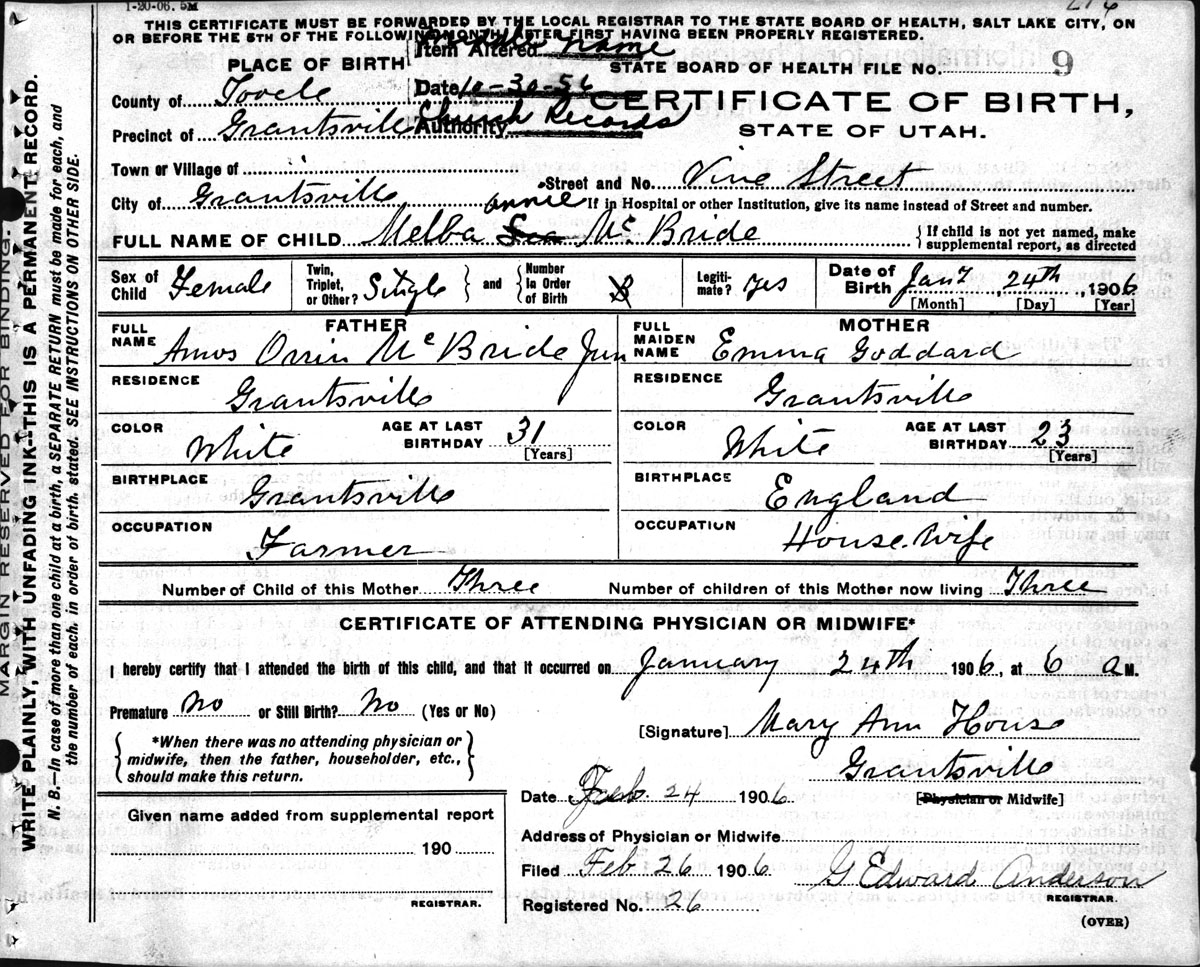 1-20-06. 5M
THIS CERTIFICATE MUST BE FORWARDED BY THE LOCAL REGISTRAR TO THE STATE BOARD OF HEALTH, SALT LAKE CITY, ON
OR BEFORE THE 5TH OF THE FOLLOWING MONTH AFTER FIRST HAVING BEEN PROPERLY REGISTERED.
Item Altered Middle Name
Date 10-30-56
Authority Church Records
STATE BOARD OF HEALTH FILE No. 9
CERTIFICATE OF BIRTH,
STATE OF UTAH.
PLACE OF BIRTH
County of Tooele
Precinct of Grantsville
Town or Village of
City of Grantsville
Street and No. Vine Street
If in Hospital or other Institution, give its name instead of Street and number.
annie
FULL NAME OF CHILD Melba Mc Bride
{If child is not yet named, make
supplemental report, as directed
Sex of Child Female
Twin, Triplet, or Other? Single } and { Number In Order of Birth 3
Legiti-mate? yes
Date of Birth Jany 24th, 1906
[Month] [Day] [Year]
FATHER
FULL NAME Amos Orrin Mc Bride Jun
RESIDENCE Grantsville
COLOR White
AGE AT LAST BIRTHDAY 31
[Years]
BIRTHPLACE Grantsville
OCCUPATION Farmer
MOTHER
FULL MAIDEN NAME Emma Goddard
RESIDENCE Grantsville
COLOR White
AGE AT LAST BIRTHDAY 23
[Years]
BIRTHPLACE England
OCCUPATION House. Wife
Number of Child of this Mother Three Number of children of this Mother now living Three
CERTIFICATE OF ATTENDING PHYSICIAN OR MIDWIFE*
I hereby certify that I attended the birth of this child, and that it occurred on January 24th 1906, at 6 a M.
Premature No or Still Birth? No (Yes or No)
{*When there was no attending physician or
midwife, then the father, householder, etc.,
should make this return.}
[Signature] Mary Ann House
Grantsville
[Physician or Midwife]
Date Feb. 24 1906
Address of Physician or Midwife
Filed Feb 26 1906
G Edward Anderson
REGISTRAR.
Registered No. 26
(OVER)
Given name added from supplemental report
190
REGISTRAR.
MARGIN RESERVED FOR BINDING.
WRITE PLAINLY, WITH UNFADING INK—THIS IS A PERMANENT RECORD.
N. B.—In case of more than one child at a birth, a SEPARATE RETURN must be made for each, and
the number of each, in order of birth, stated. SEE INSTRUCTIONS ON OTHER SIDE.